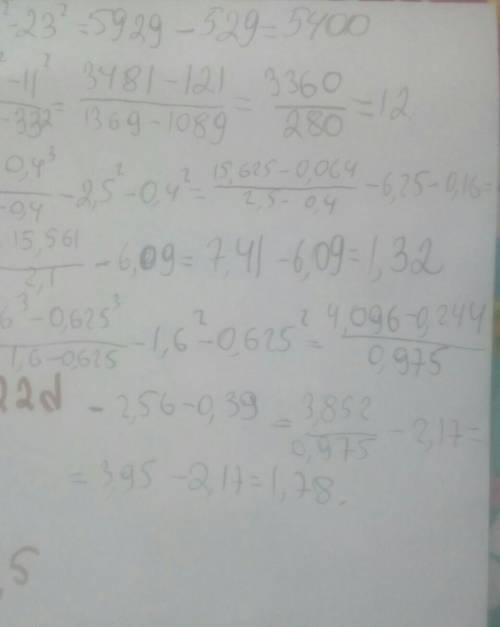 ² - 23² = 5929 - 529 = 5400
² - 11² / - 33² = 3481 - 121 / 1369 - 1089 = 3360 / 280 = 12
0,4³ / - 0,4 - 2,5² - 0,4² = 15,625 - 0,064 / 2,5 - 0,4 - 6,25 - 0,16 =
15,561 / 2,1 - 6,09 = 7,41 - 6,09 = 1,32
6³ - 0,625³ / 1,6 - 0,625 - 1,6² - 0,625² = 4,096 - 0,244 / 0,975
- 2,56 - 0,39 = 3,852 / 0,975 - 2,17 =
= 3,95 - 2,17 = 1,78.
,5